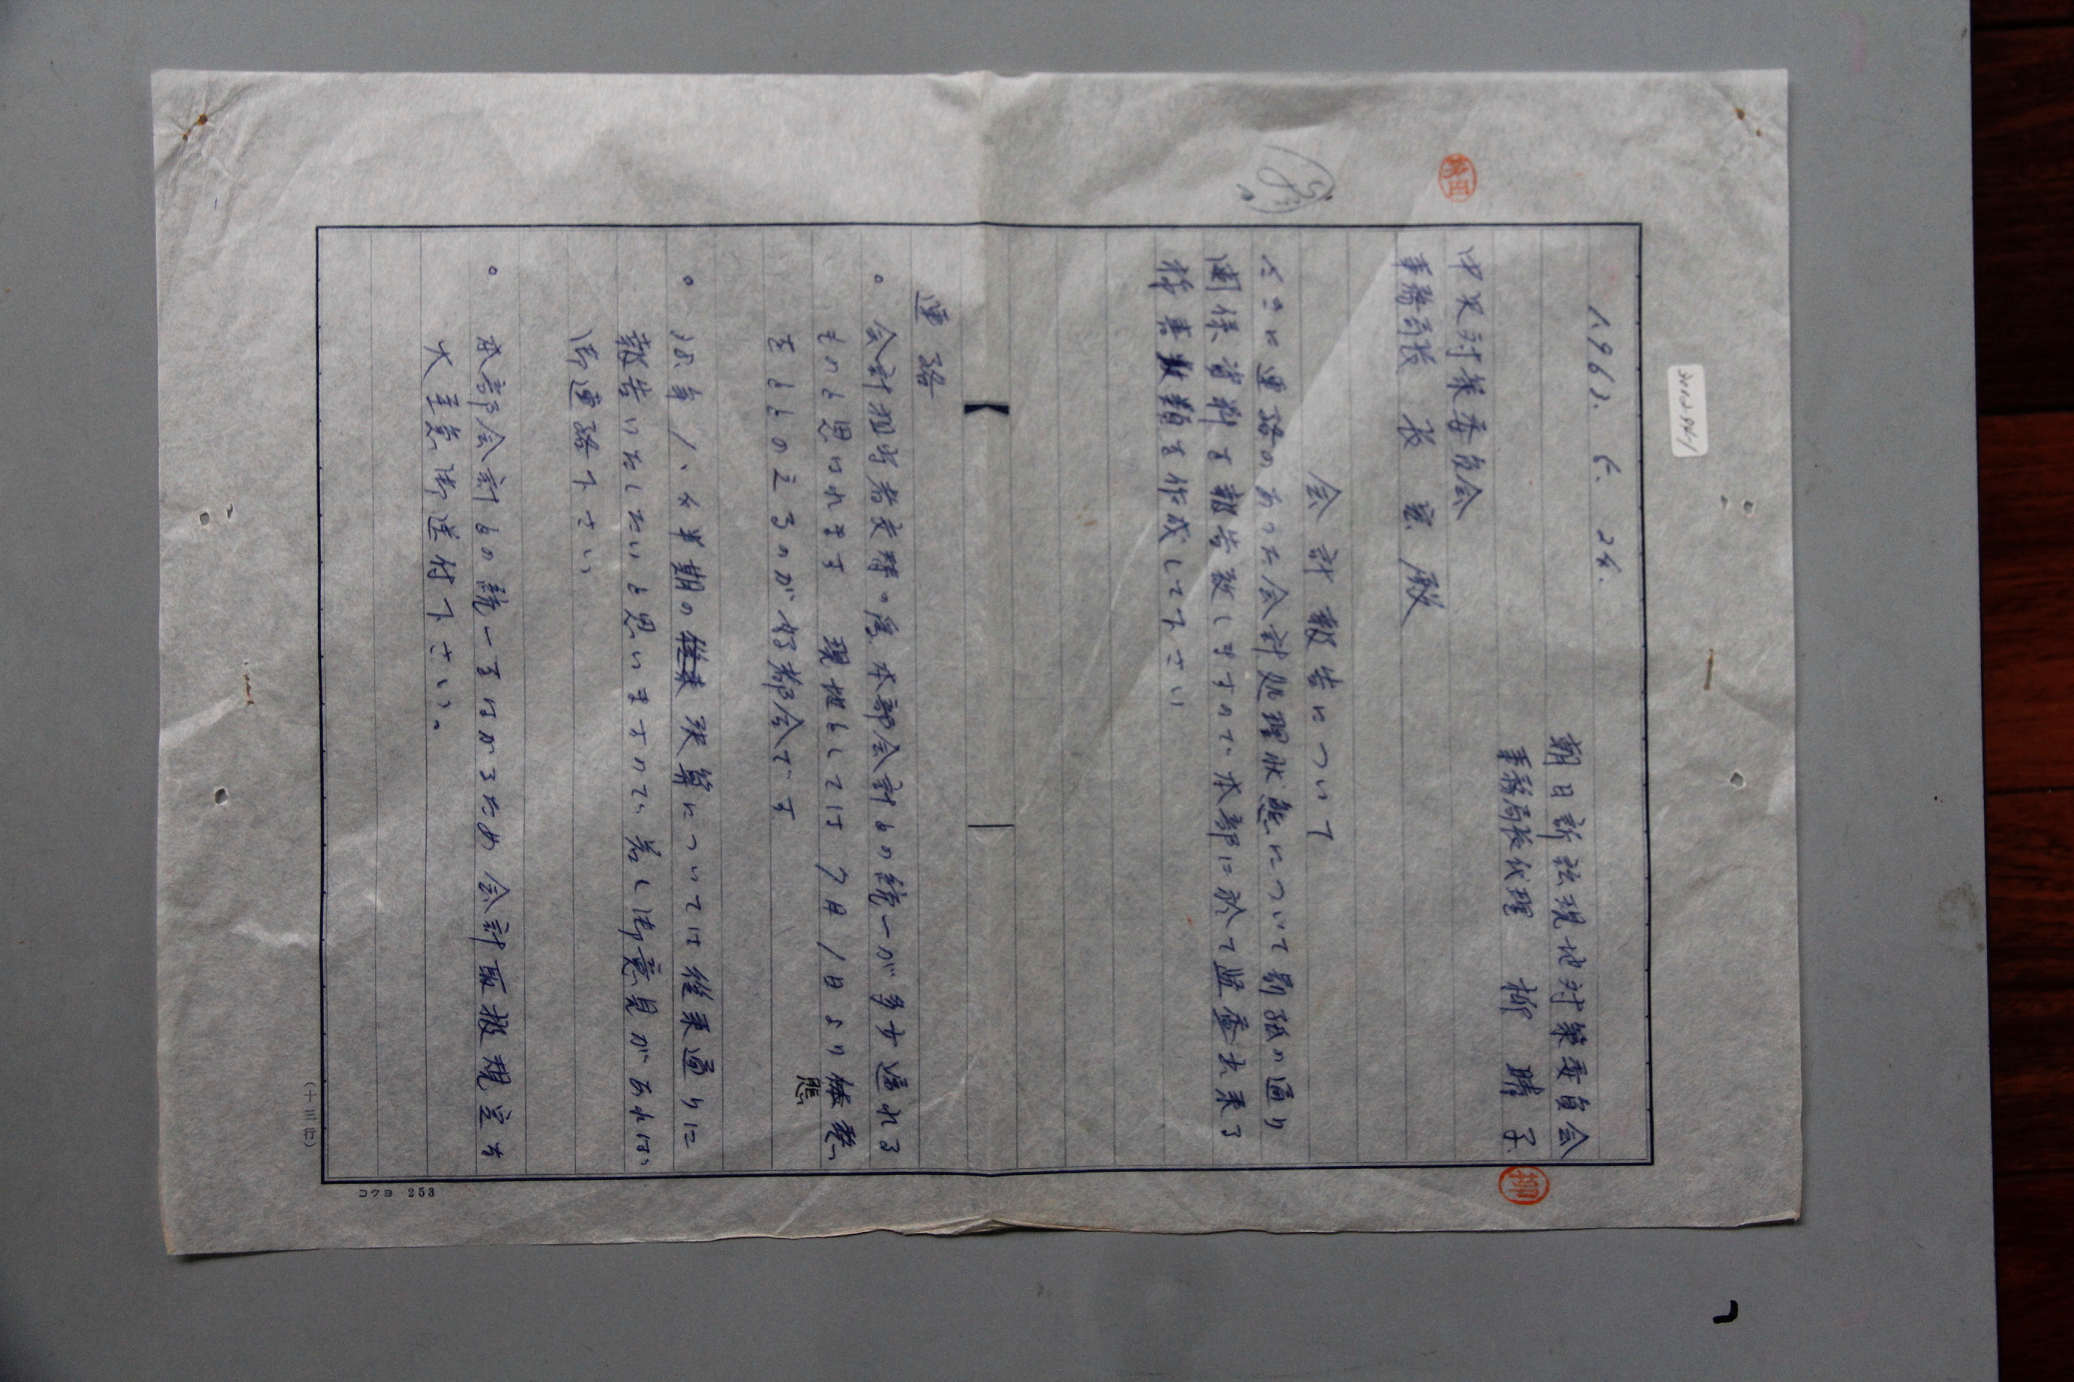 1963. 6. 24.
朝日訴訟現地対策委員会
事務局長代理 柳 晴子
中央対策委員会
事務局長 長 宏 殿
会計報告について
さきに連絡のあった会計処理状態について別紙の通り
関係資料を報告致しますので、本部に於て監査出来る
様書類を作成して下さい
連絡
。会計担当者交替の為、本部会計との統一が多少遅れる
ものと思われます 現地としては7月1日より
態
するとの立るのが好都合です
。38年1、4半期の決算については従来通りに
報告いたしたいと思いますので、若し御意見があれば、
御連絡下さい
。本部会計との統一をはかるため会計取扱規定を
大至急御送付下さい。
柳
コクヨ 253
(十三行)